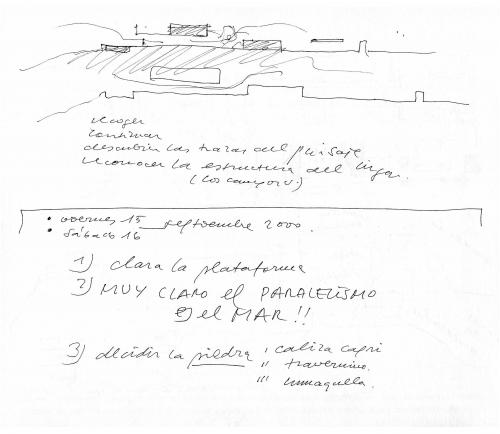 recoger
continuar
descubrir las trazas del paisaje
reconocer la estructura del lugar.
(los campos.)
• viernes 15
• sábado 16 septiembre 2000.
1) clara la plataforma
2) MUY CLARO el PARALELISMO
el MAR!!
3) decidir la piedra ' caliza capri
" travertino.
"' lumaquella.